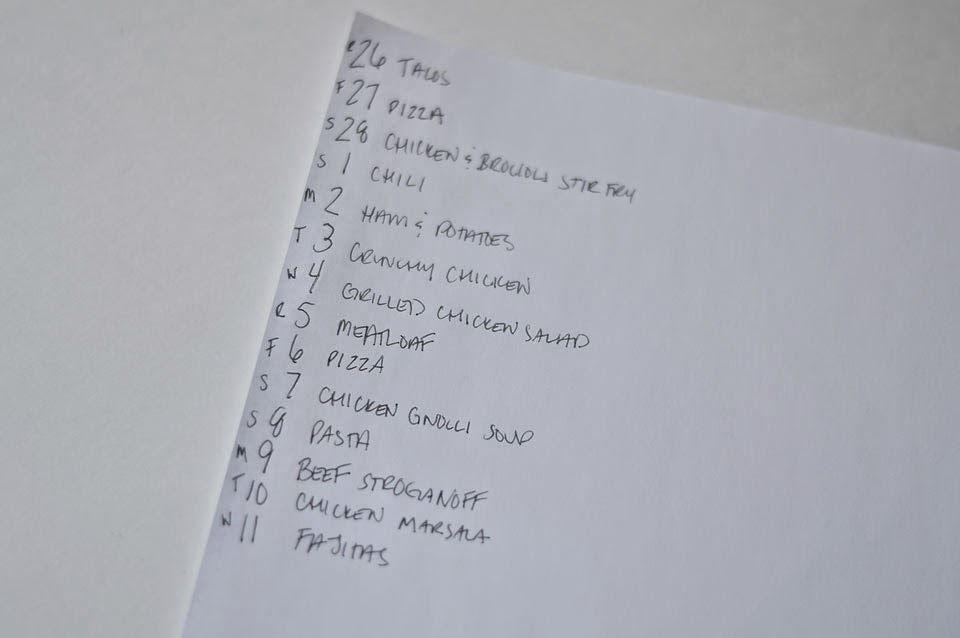 R 26 TACOS
F 27 PIZZA
S 28 CHICKEN & BROCCOLI STIR FRY
S 1 CHILI
M 2 HAM & POTATOES
T 3 CRUNCHY CHICKEN
W 4 GRILLED CHICKEN SALAD
R 5 MEATLOAF
F 6 PIZZA
S 7 CHICKEN GNOCCI SOUP
S 8 PASTA
M 9 BEEF STROGANOFF
T 10 CHICKEN MARSALA
W 11 FAJITAS